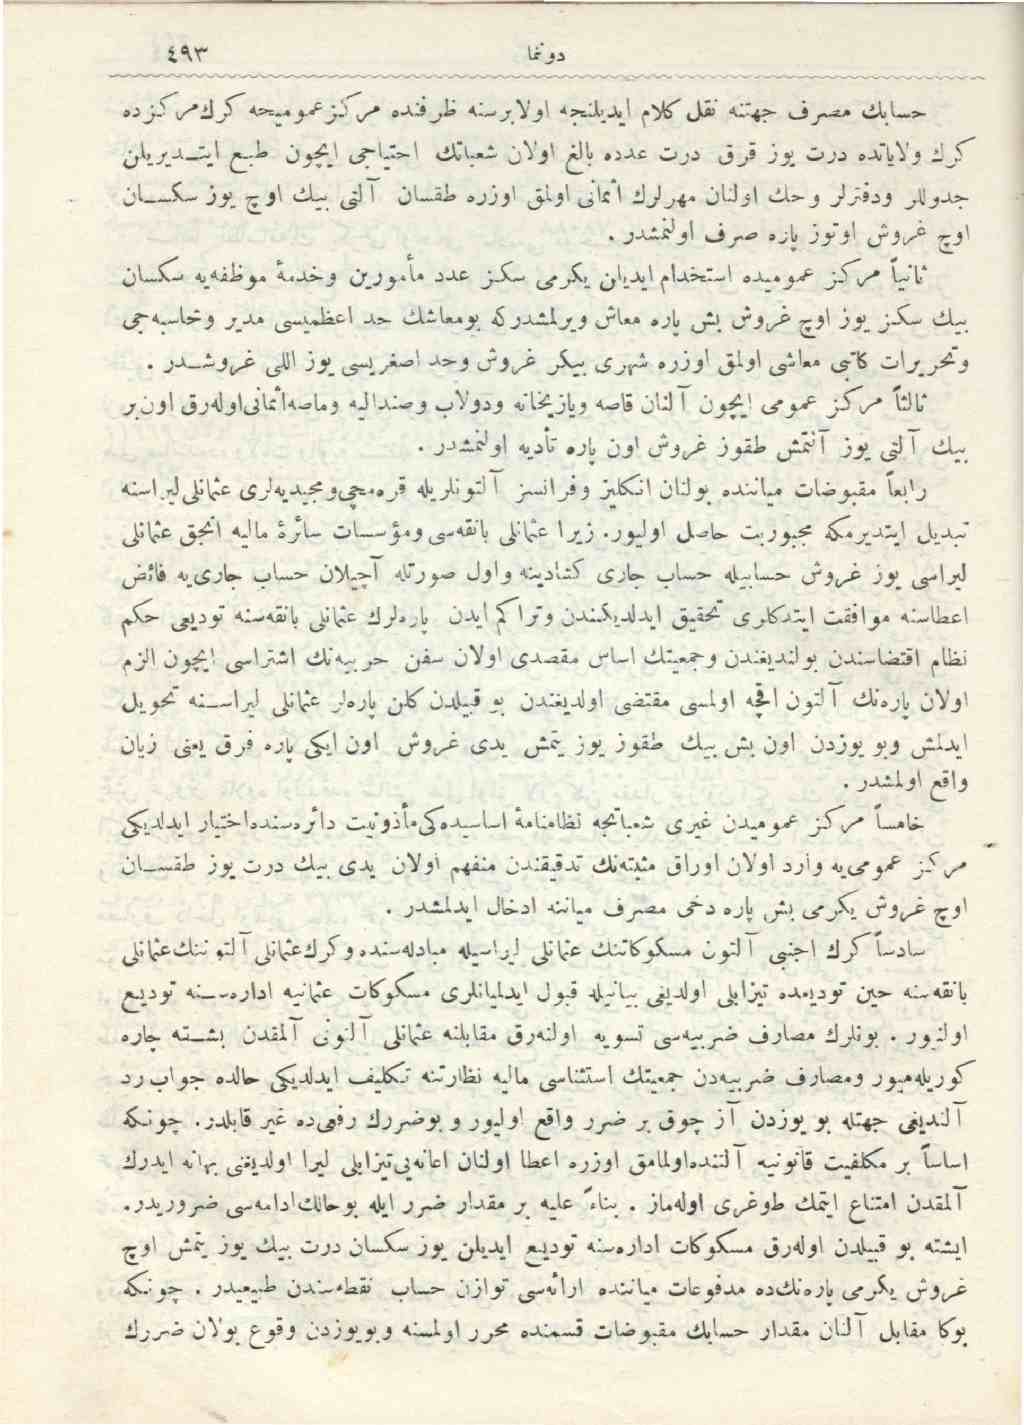 دوننما ٤٩٣
حسابك مصرف جهتنه نقل كلام ايديلنجه اولا برسنه ظرفنده مركز عموميجه كرك مركزده
كرك ولاياتده درت يوز قرق درت عدده بالغ اولان شعباتك احتياجى ايچون طبع ايتديريلن
جدوللر ودفترلر وحك اولنان مهرلرك اثمانى اولمق اوزره طقسان آلتى بيك اوچ يوز سكسان
اوچ غروش اوتوز پاره صرف اولنمشدر .
ثانياً مركز عموميده استخدام ايديلن يكرمى سكز عدد مأمورين وخدمهٔ موظفه‌يه سكسان
بيك سكز يوز اوچ غروش بش پاره معاش ويرلمشدركه بومعاشك حد اعظميسى مدير ومحاسبه‌جى
وتحريرات كاتبى معاشى اولمق اوزره شهرى بيكر غروش وحد اصغريسى يوز اللى غروشدر .
ثالثاً مركز عمومى ايچون آلنان قاصه ويازيخانه ودولاب وصنداليه وماصه اثمانى اوله‌رق اون بر
بيك آلتى يوز آلتمش طقوز غروش اون پاره تأديه اولنمشدر .
رابعاً مقبوضات مياننده بولنان انكليز وفرانسز آلتونلريله قره‌مچى ومجيديه‌لرى عثمانلى ليراسنه
تبديل ايتديرمكه مجبوريت حاصل اوليور. زيرا عثمانلى بانقه‌سى ومؤسسات سائرهٔ ماليه انجق عثمانلى
ليراسى يوز غروش حسابيله حساب جارى كشادينه واول صورتله آچيلان حساب جارى‌يه فائض
اعطاسنه موافقت ايتدكلرى تحقيق ايدلديكندن وتراكم ايدن پاره‌لرك عثمانلى بانقه‌سنه توديعى حكم
نظام اقتضاسندن بولنديغندن وجمعيتك اساس مقصدى اولان سفن حربيه‌نك اشتراسى ايچون الزم
اولان پاره‌نك آلتون اقچه اولمسى مقتضى اولديغندن بو قبيلدن كلن پاره‌لر عثمانلى ليراسنه تحويل
ايدلمش وبو يوزدن اون بش بيك طقوز يوز يتمش يدى غروش اون ايكى پاره فرق يعنى زيان
واقع اولمشدر .
خامساً مركز عموميدن غيرى شعباتجه نظامنامهٔ اساسيده‌كى مأذونيت دائره‌سنده اختيار ايدلديكى
مركز عمومى‌يه وارد اولان اوراق مثبته‌نك تدقيقندن منفهم اولان يدى بيك درت يوز طقسان
اوچ غروش يكرمى بش پاره دخى مصرف مياننه ادخال ايدلمشدر .
سادساً كرك اجنبى آلتون مسكوكاتنك عثمانلى ليراسيله مبادله‌سنده وكرك عثمانلى آلتوننك عثمانلى
بانقه‌سنه حين توديعنده تيزابلى اولديغى بيانيله قبول ايدلميانلرى مسكوكات عثمانيه اداره‌سنه توديع
اولنيور . بونلرك مصارف ضربيه‌سى تسويه اولنه‌رق مقابلنه عثمانلى آلتونى آلمقدن بشقه چاره
كوريله‌ميور ومصارف ضربيه‌دن جمعيتك استثناسى ماليه نظارتنه تكليف ايدلديكى حالده جواب رد
آلنديغى جهتله بو يوزدن آز چوق بر ضرر واقع اوليور و بوضررك رفعى‌ده غير قابلدر. چونكه
اساساً بر مكلفيت قانونيه آلتنده اولمامق اوزره اعطا اولنان اعانه‌يى تيزابلى ليرا اولديغنى بهانه ايدرك
آلمقدن امتناع ايتمك طوغرى اوله‌ماز . بناءً عليه بر مقدار ضرر ايله بوحالك ادامه‌سى ضروريدر.
ايشته بو قبيلدن اوله‌رق مسكوكات اداره‌سنه توديع ايديلن يوز سكسان درت بيك يوز يتمش اوچ
غروش يكرمى پاره‌نك‌ده مدفوعات مياننده ارائه‌سى توازن حساب نقطه‌سندن طبيعيدر . چونكه
بوكا مقابل آلنان مقدار حسابك مقبوضات قسمنده محرر اولمسنه وبويوزدن وقوع بولان ضررك